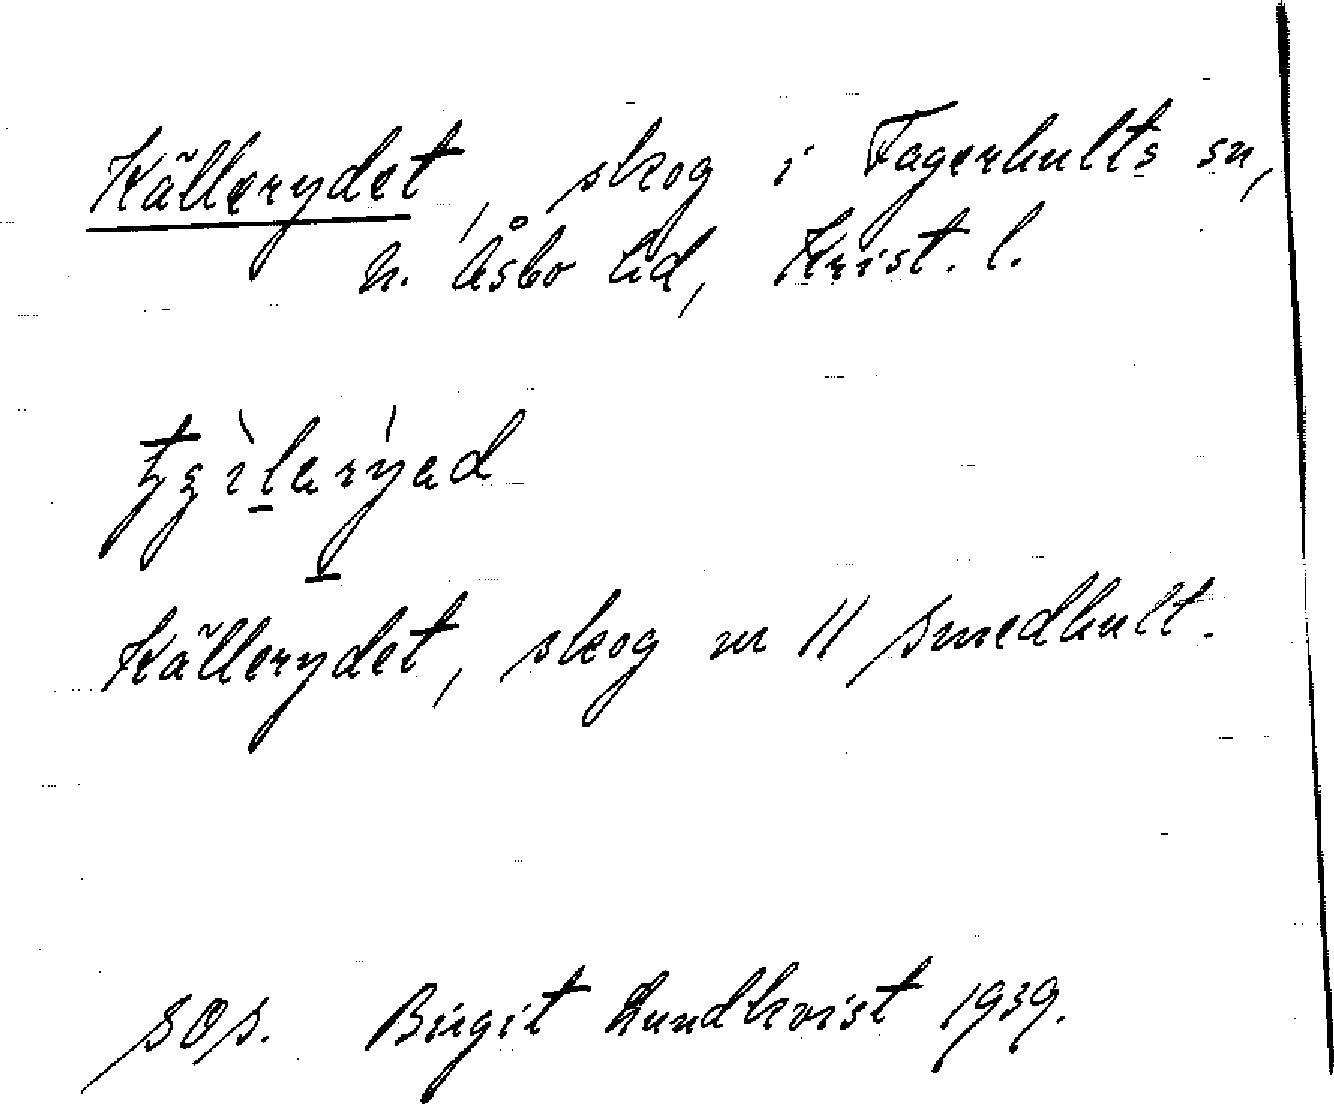 Källerydet, skog i Fagerhults sn,
N. Åsbo hd, Krist. l.
Källerydet, skog nr 11 Smedhult.
sos. Birgit Lundkvist 1939.